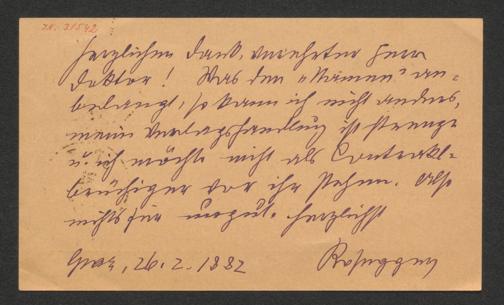 J.N. 31542
Herzlichen Dank, verehrter Herr
Doktor! Was den "Namen" an-
belangt, so kann ich nicht anders,
mein Verlagshandlung ist strenge
u. ich möchte nicht als Contrakt-
brüchiger vor ihr stehen. Also
nichts für ungut. Herzlichst
Graz, 26.2.1882 Rosegger